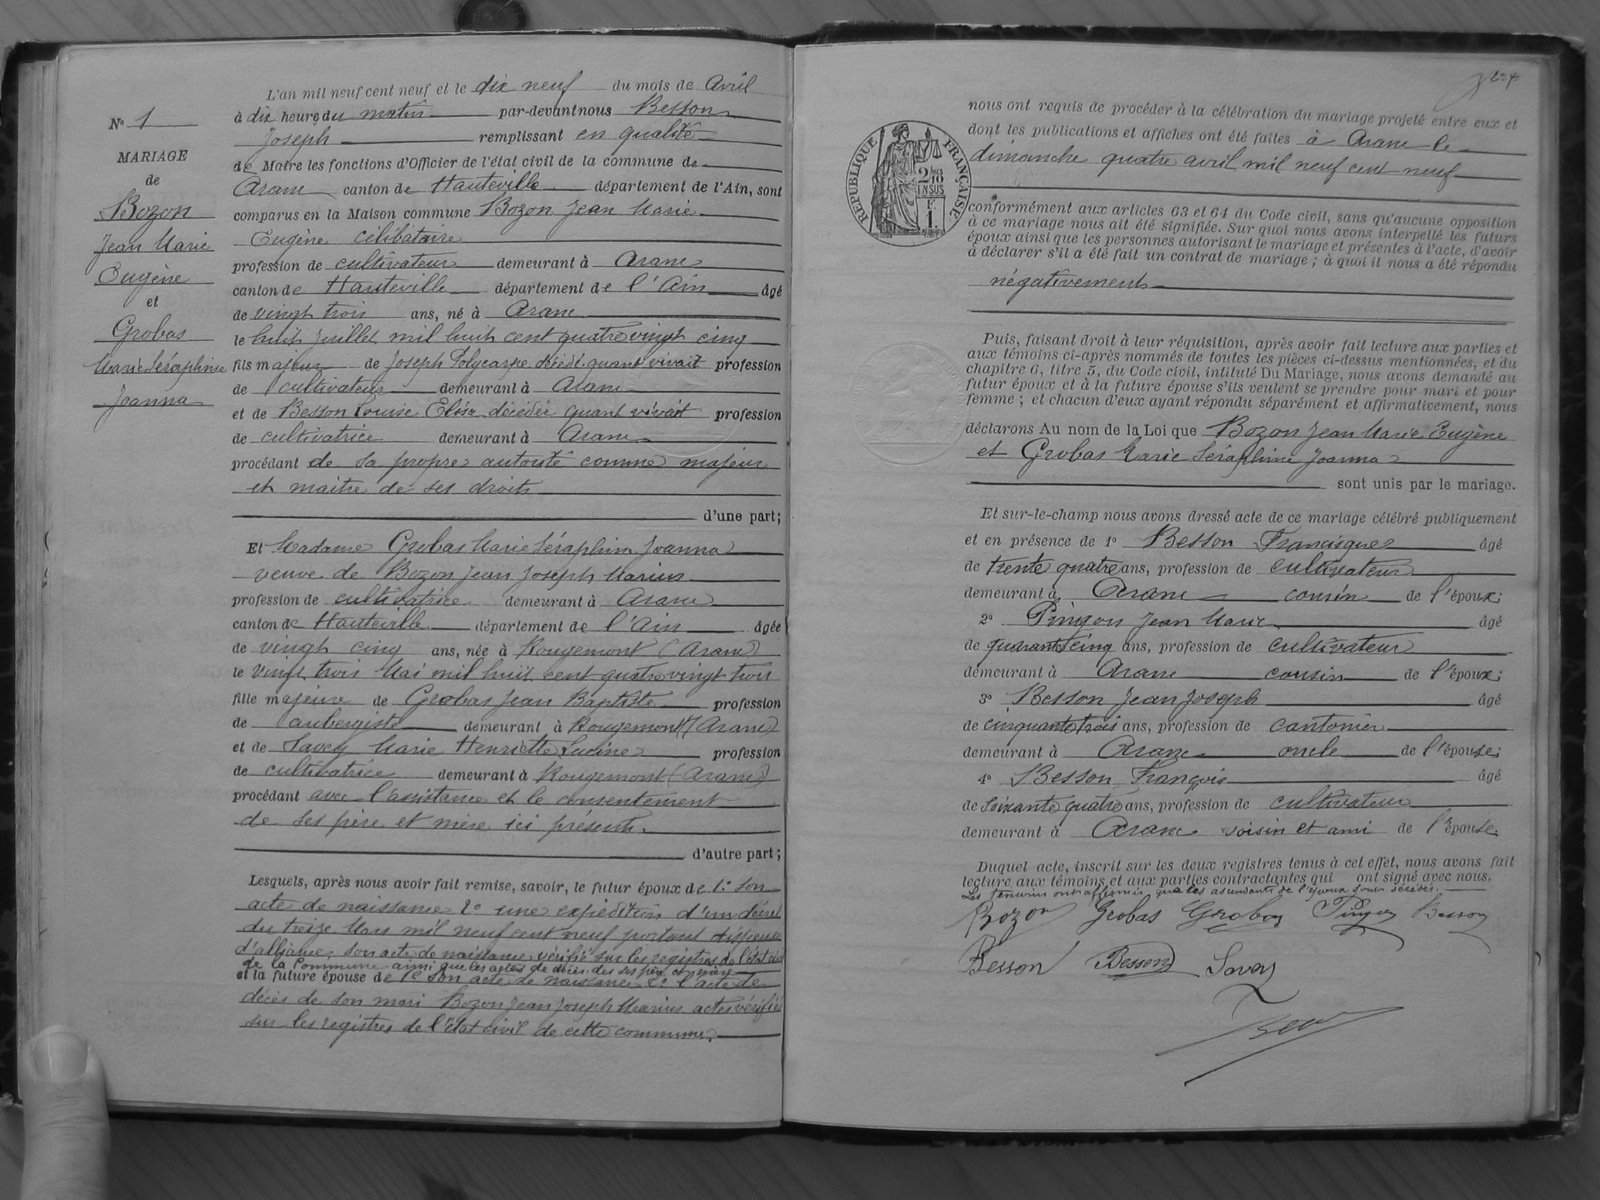 L'an mil neuf cent neuf et le dix neuf du mois de Avril
à dix heures du matin par-devant nous Besson
Joseph remplissant en qualité
de Maire les fonctions d'Officier de l'état civil de la commune de
Aranc canton de Hauteville département de l'Ain, sont
comparus en la Maison commune Bozon Jean Marie
Eugène célibataire
profession de cultivateur demeurant à Aranc
canton de Hauteville département de l'Ain âgé
de vingt trois ans, né à Aranc
le huit Juillet mil huit cent quatre vingt cinq
fils majeur de Joseph Polycarpe décédé quant vivait profession
de cultivateur demeurant à Aranc
et de Besson Louise Eloïse décédée quant vivait profession
de cultivatrice demeurant à Aranc
procédant de sa propre autorité comme majeur
et maitre de ses droits
d'une part;
Et Madame Grobas Marie Séraphine Joanna
veuve de Bozon Jean Joseph Marius
profession de cultivatrice demeurant à Aranc
canton de Hauteville département de l'Ain âgée
de vingt cinq ans, née à Rougemont (Aranc)
le vingt trois Mai mil huit cent quatre vingt trois
fille majeure de Grobas Jean Baptiste profession
de aubergiste demeurant à Rougemont (Aranc)
et de Savey Marie Henriette Lucine profession
de cultivatrice demeurant à Rougemont (Aranc)
procédant avec l'assistance et le consentement
de ses père et mère ici présents.
d'autre part;
Lesquels, après nous avoir fait remise, savoir, le futur époux de 1° son
acte de naissance 2° une expédition d'un décret
du treize Mars mil neuf cent neuf portant dispense
d'alliance, son acte de naissance vérifié sur les registres de l'état civil
de la Commune ainsi que les actes de décès des ses père et mère
et la future épouse de 1° son acte de naissance 2° l'acte de
décès de son mari Bozon Jean Joseph Marius actes vérifiés
sur les registres de l'état civil de cette commune.
N° 1
MARIAGE
de
Bozon
Jean Marie
Eugène
et
Grobas
Marie Séraphine
Joanna
nous ont requis de procéder à la célébration du mariage projeté entre eux et
dont les publications et affiches ont été faites à Aranc le
dimanche quatre avril mil neuf cent neuf
RÉPUBLIQUE FRANÇAISE
conformément aux articles 63 et 64 du Code civil, sans qu'aucune opposition
à ce mariage nous ait été signifiée. Sur quoi nous avons interpellé les futurs
époux ainsi que les personnes autorisant le mariage et présentes à l'acte, d'avoir
à déclarer s'il a été fait un contrat de mariage; à quoi il nous a été répondu
négativement
Puis, faisant droit à leur réquisition, après avoir fait lecture aux parties et
aux témoins ci-après nommés de toutes les pièces ci-dessus mentionnées, et du
chapitre 6, titre 5, du Code civil, intitulé Du Mariage, nous avons demandé au
futur époux et à la future épouse s'ils veulent se prendre pour mari et pour
femme; et chacun d'eux ayant répondu séparément et affirmativement, nous
déclarons Au nom de la Loi que Bozon Jean Marie Eugène
et Grobas Marie Séraphine Joanna
sont unis par le mariage.
Et sur-le-champ nous avons dressé acte de ce mariage célébré publiquement
et en présence de 1° Besson Francisque âgé
de trente quatre ans, profession de cultivateur
demeurant à Aranc cousin de l'époux;
2° Pingon Jean Marie âgé
de quarante cinq ans, profession de cultivateur
demeurant à Aranc cousin de l'époux;
3° Besson Jean Joseph âgé
de cinquante trois ans, profession de cantonier
demeurant à Aranc oncle de l'épouse;
4° Besson François âgé
de soixante quatre ans, profession de cultivateur
demeurant à Aranc voisin et ami de l'épouse
Duquel acte, inscrit sur les deux registres tenus à cet effet, nous avons fait
lecture aux témoins et aux parties contractantes qui ont signé avec nous.
Les témoins ont affirmé que les ascendants de l'époux sont décédés.
Bozon Grobas Grobas Pingon Besson
Besson Besson Savey